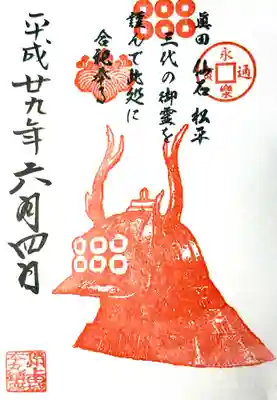 眞田 仙石 松平
三代の御霊を
謹んで此処に
合祀奉る
永樂通
平成廿九年六月四日